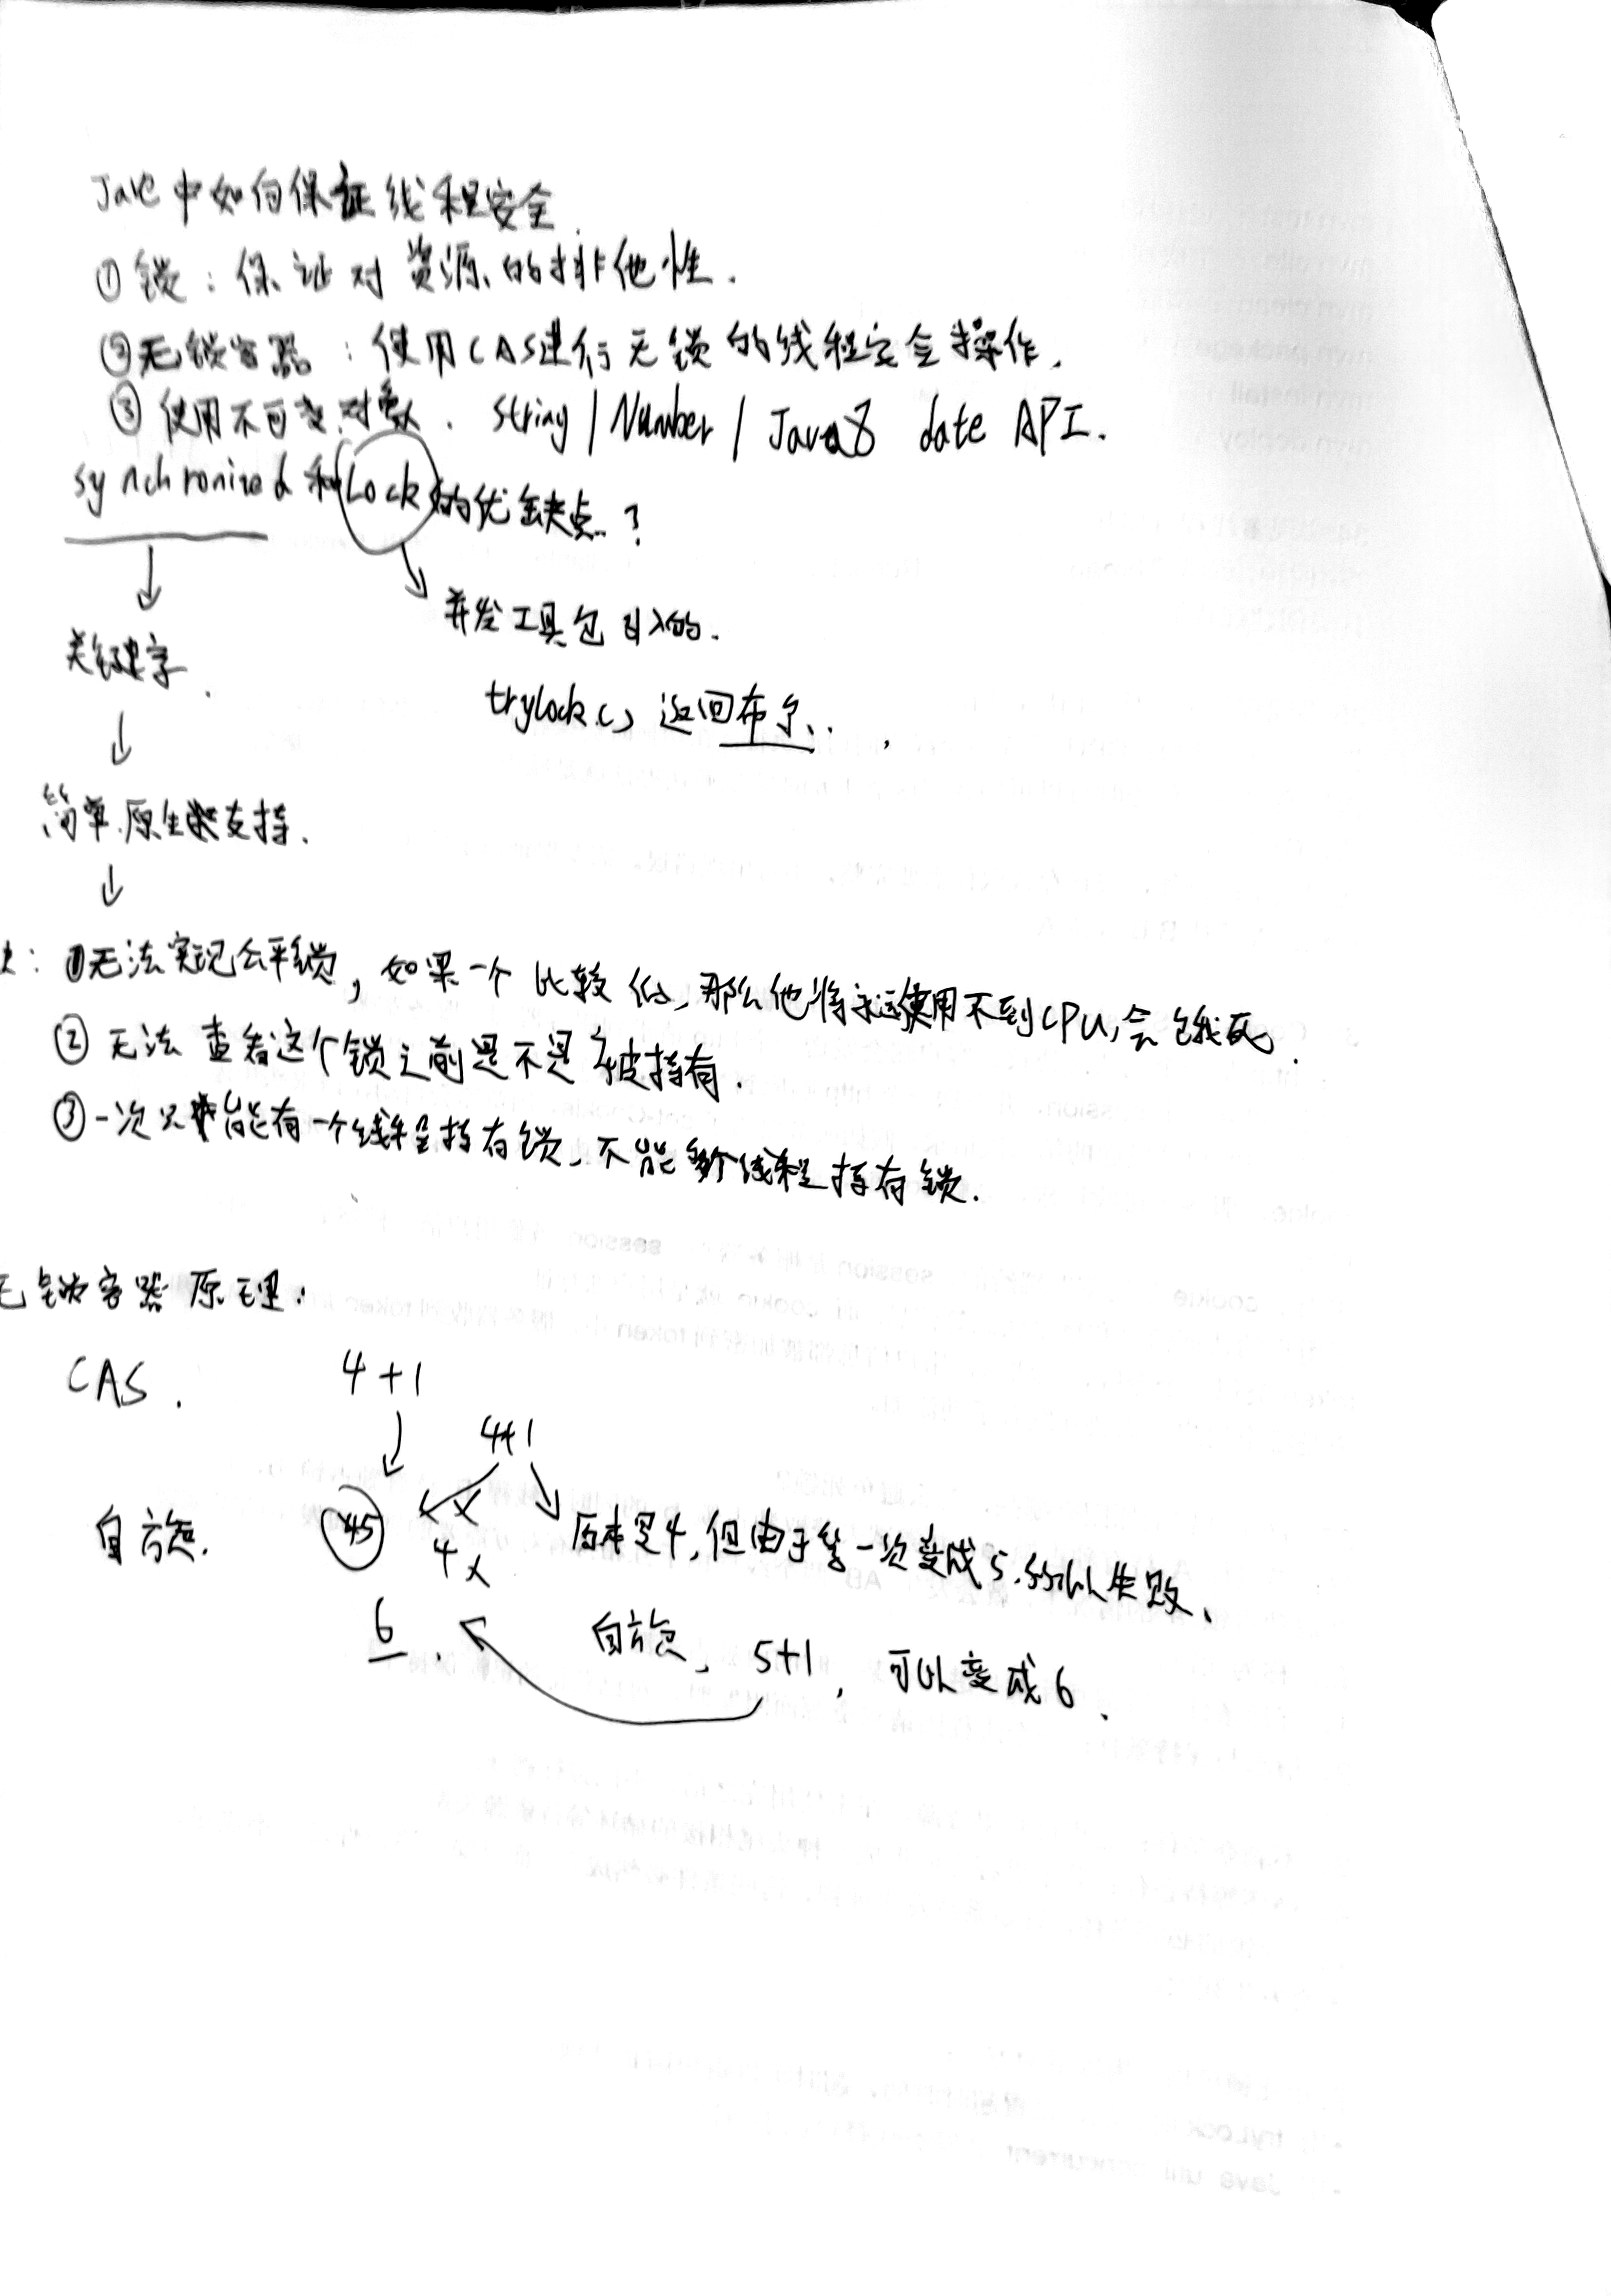 Java中如何保证线程安全
①锁：保证对资源的排他性.
②无锁容器：使用CAS进行无锁的线程安全操作.
③使用不可变对象. String / Number / Java8 date API.
synchronized和Lock的优缺点？
并发工具包引入的.
关键字.
trylock() 返回布尔.
简单.原生支持.
①无法实现公平锁，如果一个比较低，那么他将永远使用不到CPU,会饿死.
②无法查看这个锁之前是不是被持有.
③一次只能有一个线程持有锁，不能多个线程持有锁.
无锁容器原理：
CAS. 4+1
4+1
自旋. 45 原本是4,但由于第一次变成5.所以失败.
4 x
6. 自旋, 5+1, 可以变成6.